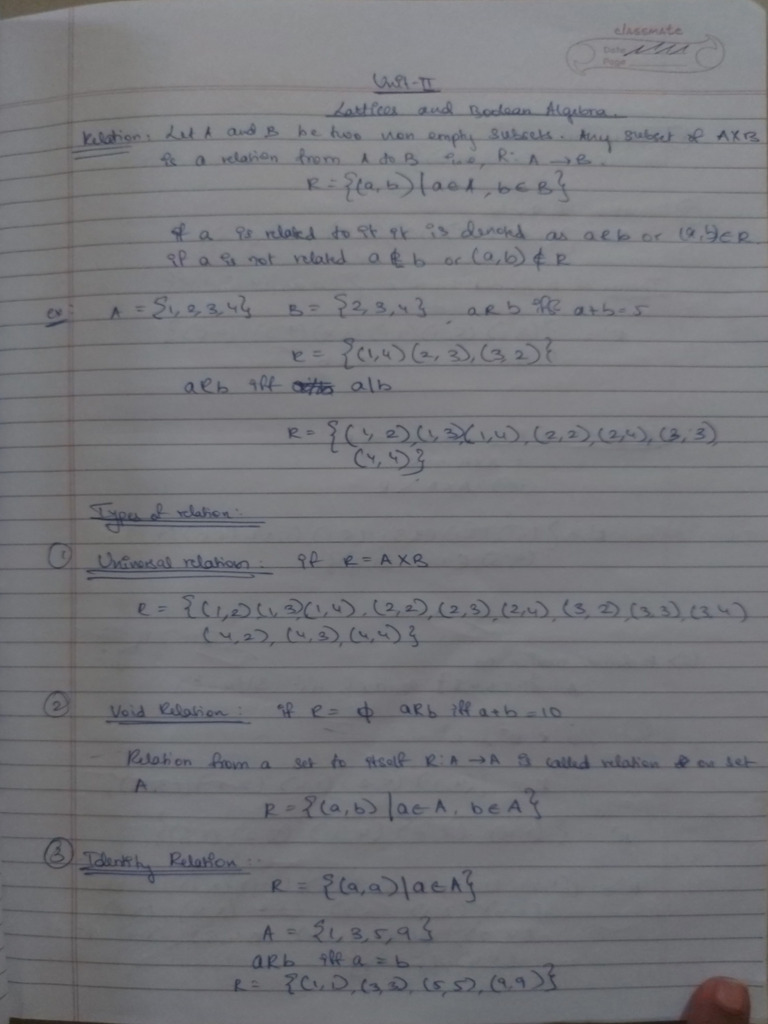 classmate
Date
Page
Unit-II
Lattices and Boolean Algebra.
Relation: Let A and B be two non empty subsets. Any subset of A×B
is a relation from A to B i.e., R: A → B.
R = {(a, b) | a ∈ A, b ∈ B}
if a is related to it it is denoted as aRb or (a, b) ∈ R
if a is not related a R̸ b or (a, b) ∉ R
ex: A = {1, 2, 3, 4} B = {2, 3, 4} aRb iff a+b=5
R = {(1,4) (2, 3), (3, 2)}
aRb iff a|b
R = {(1, 2), (1, 3) (1, 4), (2, 2), (2, 4), (3, 3)
(4, 4)}
Types of relation:
① Universal relation: if R = A×B
R = {(1,2) (1, 3) (1, 4), (2, 2), (2, 3), (2, 4), (3, 2), (3, 3), (3, 4)
(4, 2), (4, 3), (4, 4)}
② Void Relation: if R = ϕ aRb iff a+b = 10
Relation from a set to itself R: A → A is called relation on set
A.
R = {(a, b) | a ∈ A, b ∈ A}
③ Identity Relation:
R = {(a, a) | a ∈ A}
A = {1, 3, 5, 9}
aRb iff a = b
R = {(1, 1), (3, 3), (5, 5), (9, 9)}